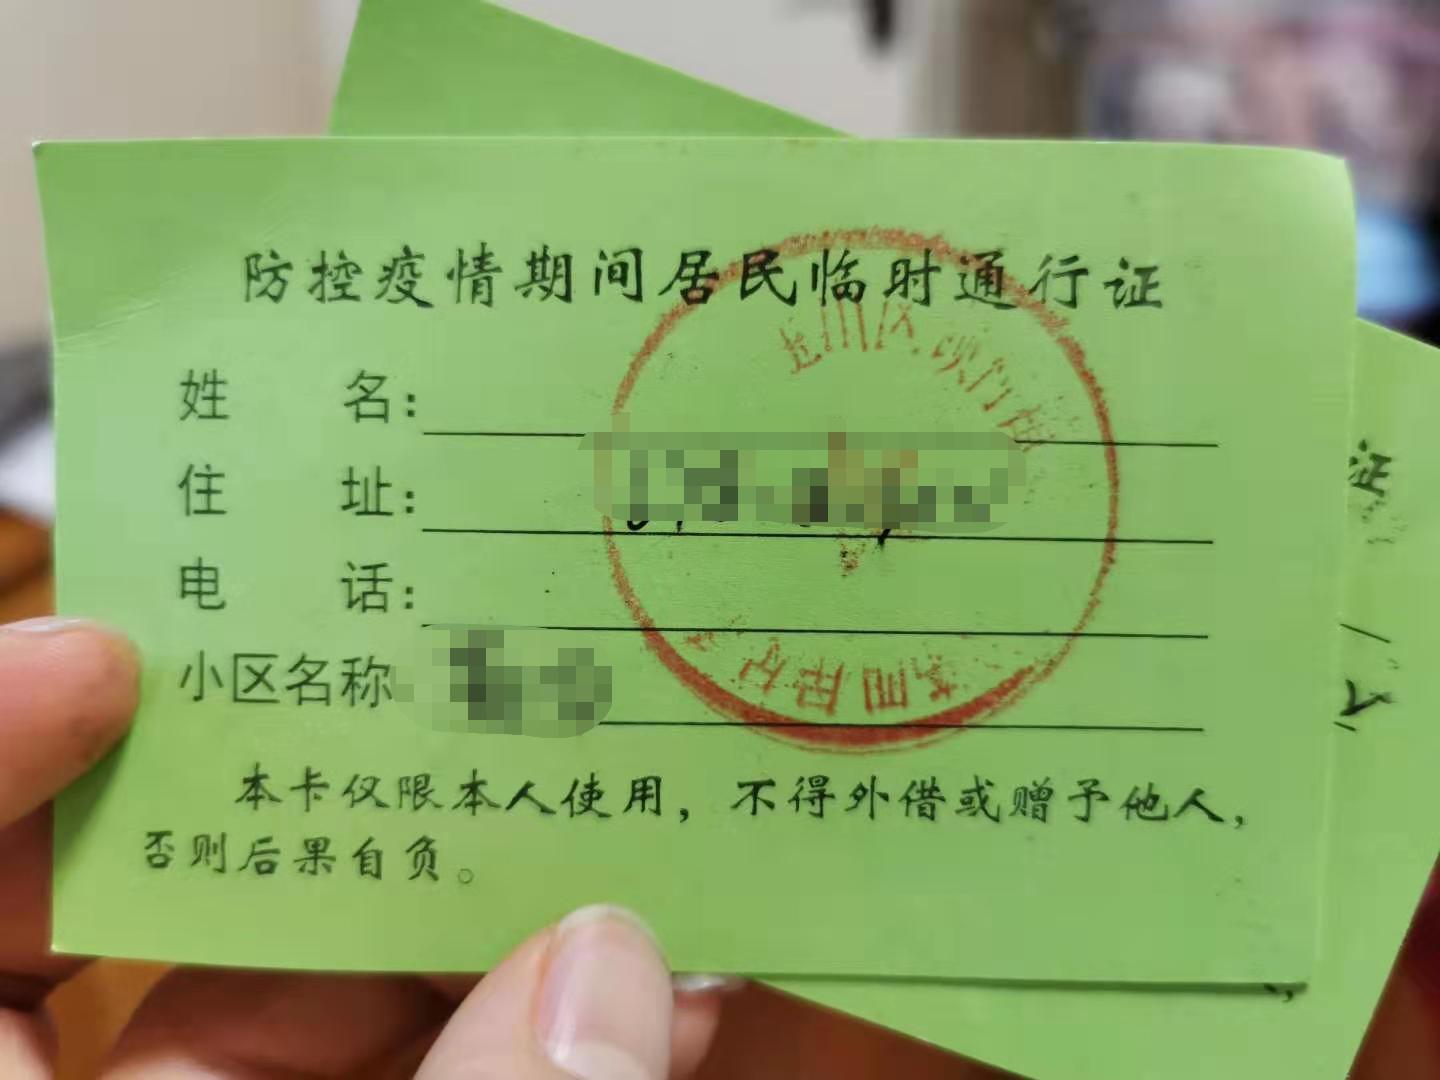 防控疫情期间居民临时通行证
姓 名：
住 址：
电 话：
小区名称
本卡仅限本人使用，不得外借或赠予他人，
否则后果自负。
证